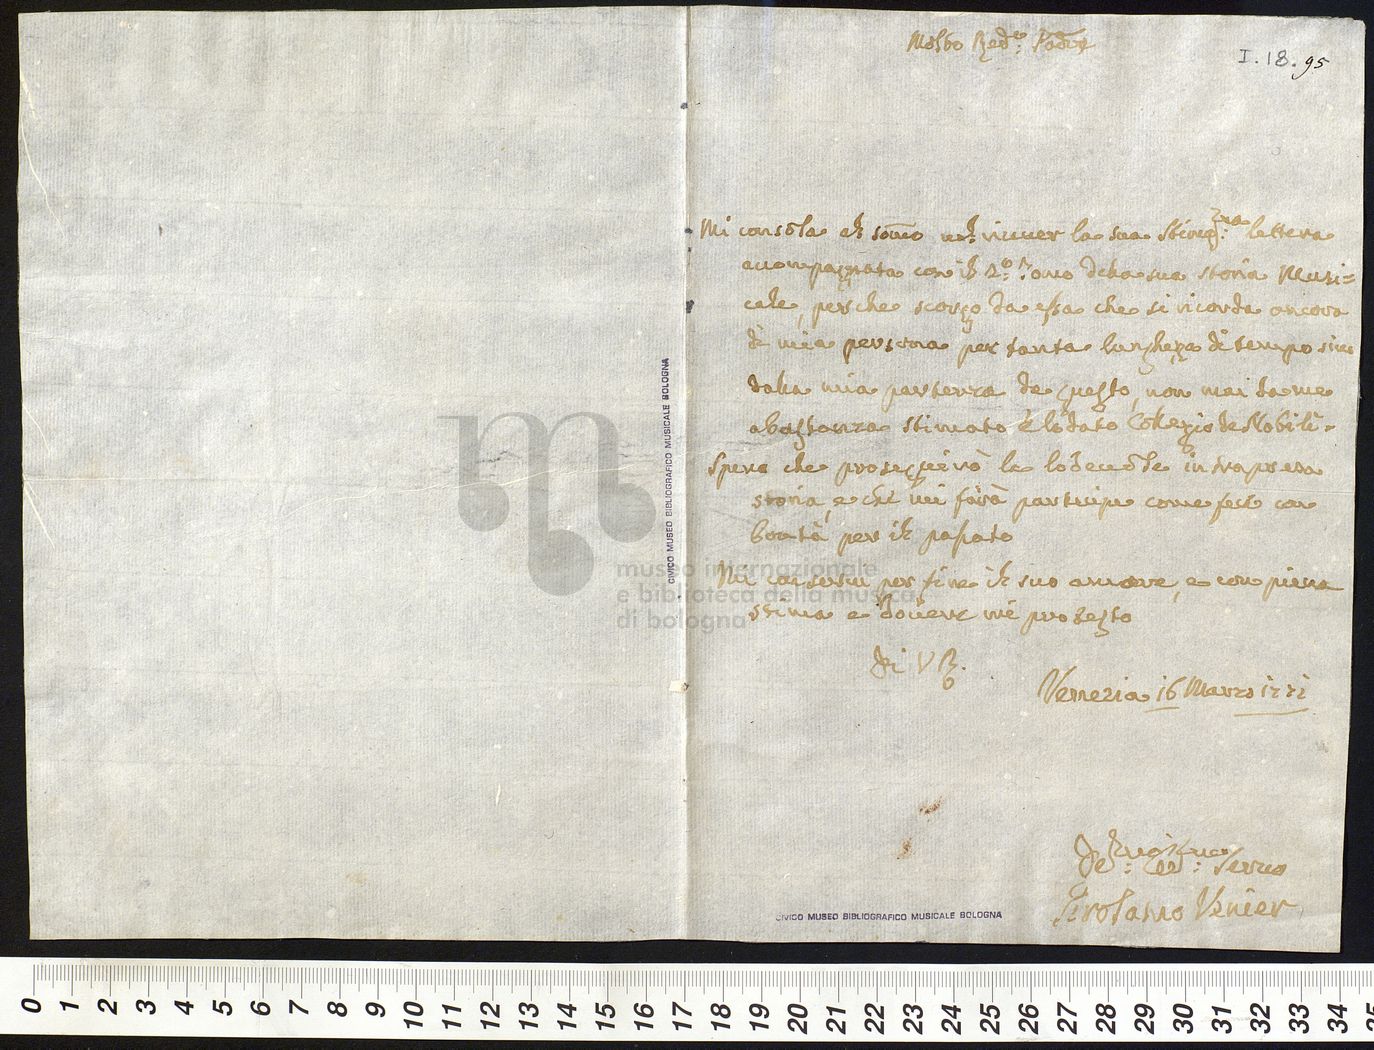 Molto Redo: Padre
I.18.95
Mi consola al somo nel ricever la sua Stimma: lettera
accompagnata con il 2o: Tomo della sua storia Musi=
cale, perche scorgo da essa che si ricorda ancora
di mia persona per tanta lunghezza di tempo
dalla mia partenza da questo, non mai da me
abastanza stimato e lodato Collegio de Nobili.
Spero che proseguirà la lodevole intrapresa
storia, e che mi farà partecipe come fece con
bontà per il passato
Mi conservi per fine il suo amore, e con piena
stima e dovere mi protesto
Di V R.
Venezia 16 Marzo 1771
Servo
Girolamo Venier
CIVICO MUSEO BIBLIOGRAFICO MUSICALE BOLOGNA
CIVICO MUSEO BIBLIOGRAFICO MUSICALE BOLOGNA
museo internazionale
e biblioteca della musica
di bologna
0 1 2 3 4 5 6 7 8 9 10 11 12 13 14 15 16 17 18 19 20 21 22 23 24 25 26 27 28 29 30 31 32 33 34 35